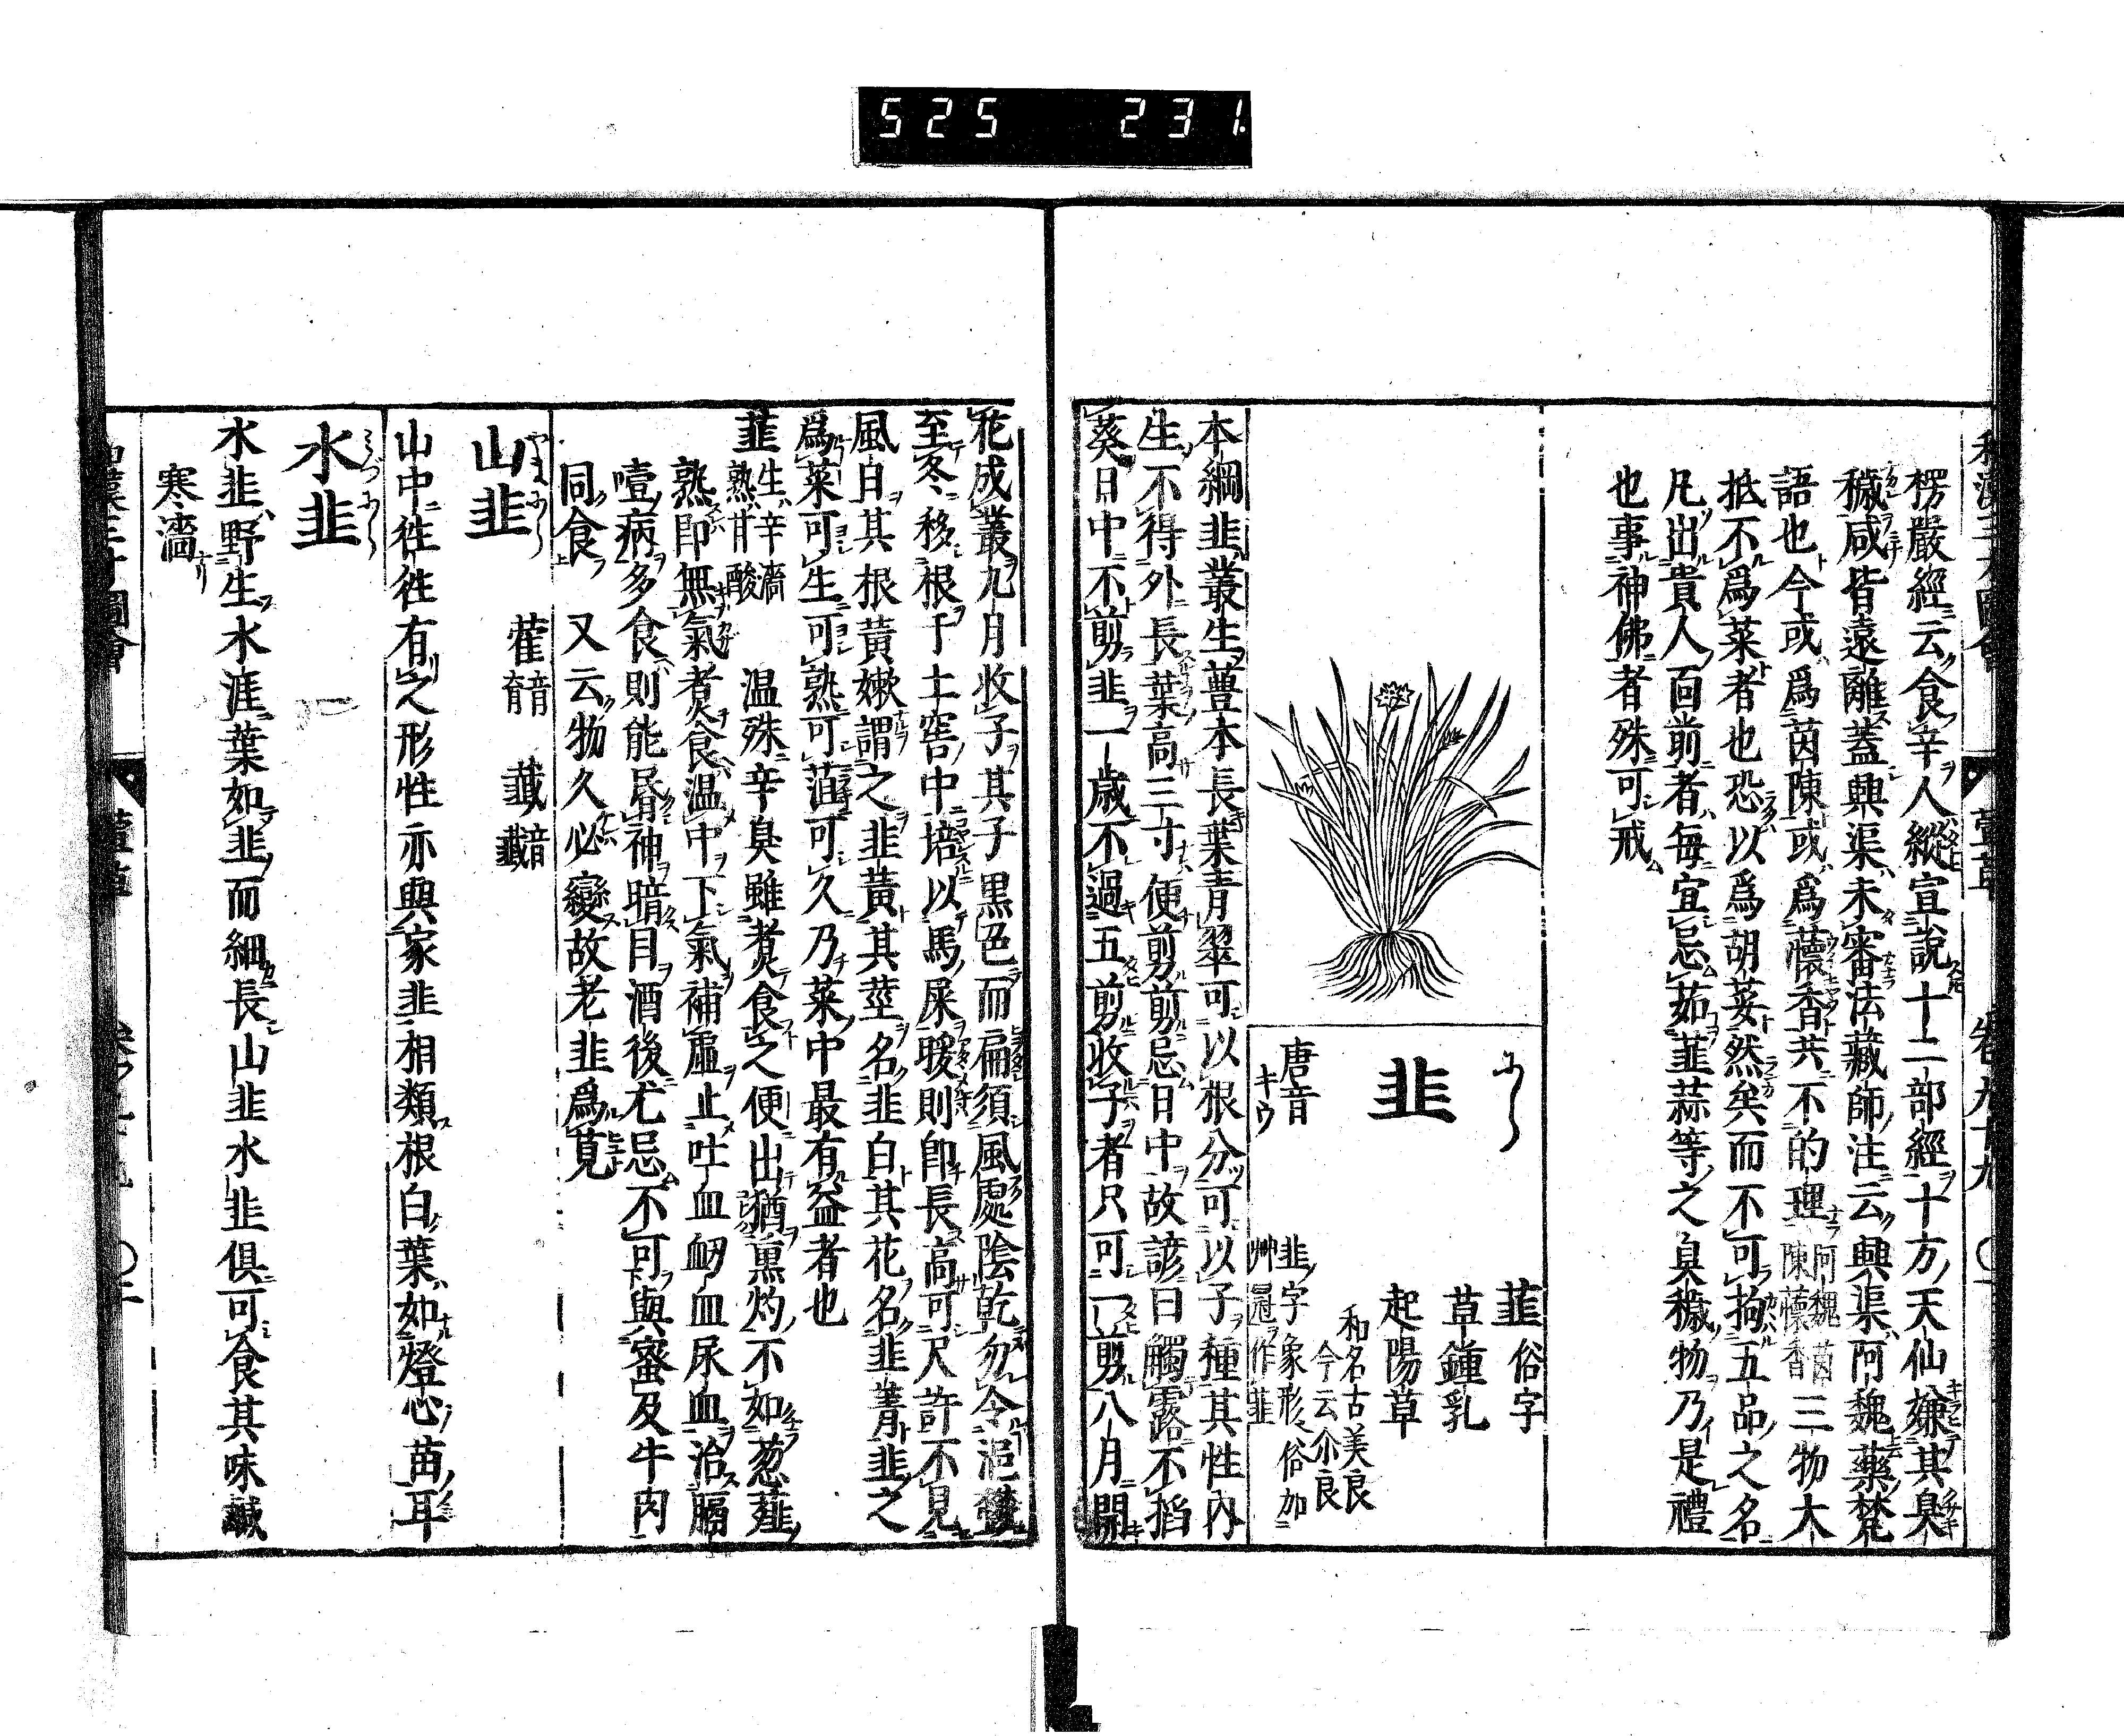 525 231
楞嚴經云食辛人縱宣說十二部經十方天仙嫌其臭
穢咸皆遠離蓋興渠未審法藏師注云興渠阿魏藥梵
語也今或爲茵陳或爲蘹香共不的理阿魏茵陳蘹香三物大
抵不爲菜者也恐以爲胡荽然矣而不可拘五品之名
凡出貴人面前者每宜忌茹韮蒜等之臭穢物乃是禮
也事神佛者殊可戒
にら
韭
唐音
キウ
韮俗字
草鍾乳
起陽草
和名古美良
今云尒良
韭字象形俗加
艸冠作韮
本綱韭叢生豐本長葉青翠可以根分可以子種其性內
生不得外長葉高三寸便剪剪忌日中故諺曰觸露不搯
葵日中不剪韭一歲不過五剪收子者只可一剪八月開
花成叢九月收子其子黑色而扁須風處陰乾勿令浥鬱
至冬移根于土窖中培以馬屎暖則卽長高可尺許不見
風日其根黃嫩謂之韭黃其莖名韭白其花名韭菁韭之
爲菜可生可熟可菹可久乃菜中最有益者也
韮 生辛濇 熟甘酸 温殊辛臭雖煑食之便出猶熏灼不如葱薤
熟卽無氣煑食温中下氣補虛止吐血衂血尿血治膈
噎病多食則能昏神暗目酒後尤忌不可與蜜及牛肉
同食 又云物久必變故老韭爲莧
やまにら
山韭 藿音育 韱音韱
山中徃徃有之形性亦與家韭相類根白葉如燈心苗耳
みづにら
水韭
水韭野生水涯葉如韭而細長山韭水韭俱可食其味鹹
寒濇